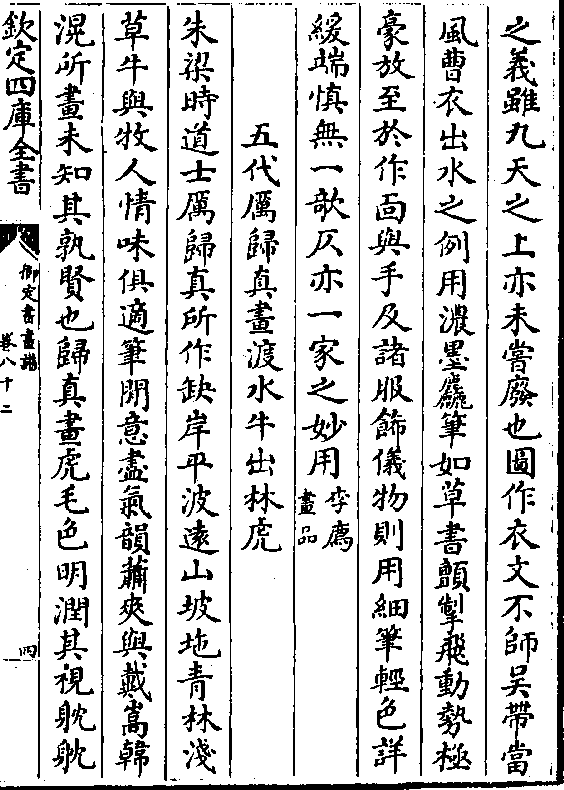 之義雖九天之上亦未嘗廢也圖作衣文不師吳帶當
風曹衣出水之例用濃墨麤筆如草書顫掣飛動勢極
豪放至於作面與手及諸服飾儀物則用細筆輕色詳
緩端慎無一欹仄亦一家之妙用李廌畫品
五代厲歸真畫渡水牛出林虎
朱梁時道士厲歸真所作缺岸平波遠山坡地青林淺
草牛與牧人情味俱適筆閒意盡氣韻蕭爽與戴嵩韓
滉所畫未知其孰賢也歸真畫虎毛色明潤其視眈眈
欽定四庫全書
御定書畫譜
卷八十二
四